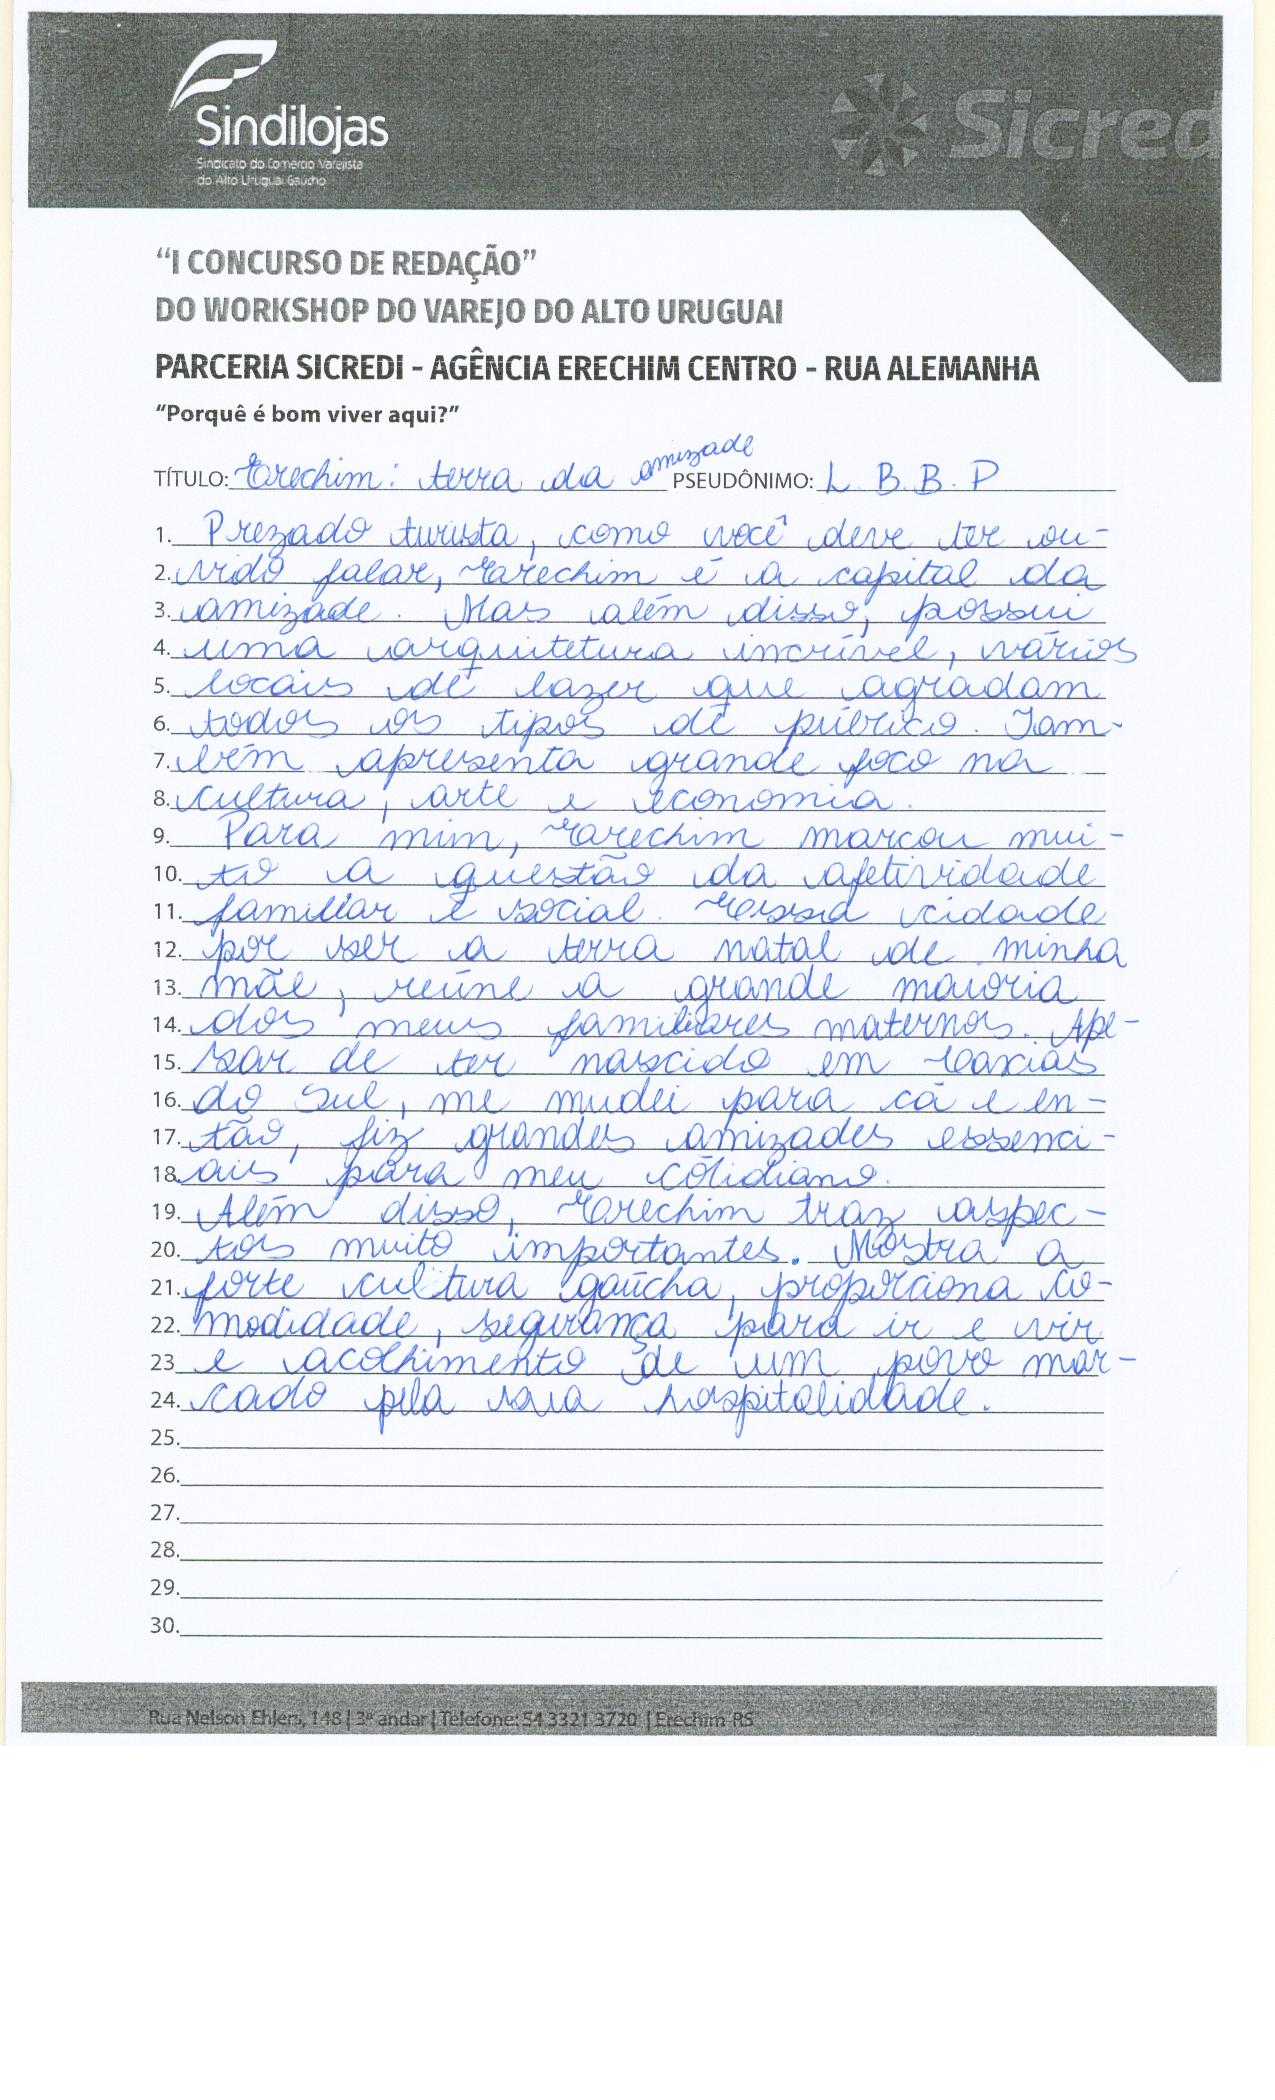 Sindilojas
Sindicato do Comércio Varejista
do Alto Uruguai Gaúcho
Sicred
"I CONCURSO DE REDAÇÃO"
DO WORKSHOP DO VAREJO DO ALTO URUGUAI
PARCERIA SICREDI - AGÊNCIA ERECHIM CENTRO - RUA ALEMANHA
"Porquê é bom viver aqui?"
TÍTULO: Erechim: terra da amizade PSEUDÔNIMO: L. B. B. P
1. Prezado turista, como você deve ter ou-
2. vido falar, Erechim é a capital da
3. amizade. Mas além disso, possui
4. uma arquitetura incrível, vários
5. locais de lazer que agradam
6. todos os tipos de público. Tam-
7. bém apresenta grande foco na
8. cultura, arte e economia.
9. Para mim, Erechim marcou mui-
10. to a questão da afetividade
11. familiar e social. Essa cidade
12. por ser a terra natal de minha
13. mãe, reúne a grande maioria
14. dos meus familiares maternos. Ape-
15. sar de ter nascido em Caxias
16. do Sul, me mudei para cá e en-
17. tão, fiz grandes amizades essenci-
18. ais para meu cotidiano.
19. Além disso, Erechim traz aspec-
20. tos muito importantes. Mostra a
21. forte cultura gaúcha, proporciona co-
22. modidade, segurança para ir e vir
23 e acolhimento de um povo mar-
24. cado pela sua hospitalidade.
25.
26.
27.
28.
29.
30.
Rua Nelson Ehlers, 148 | 3º andar | Telefone: 54 3321 3720 | Erechim-RS